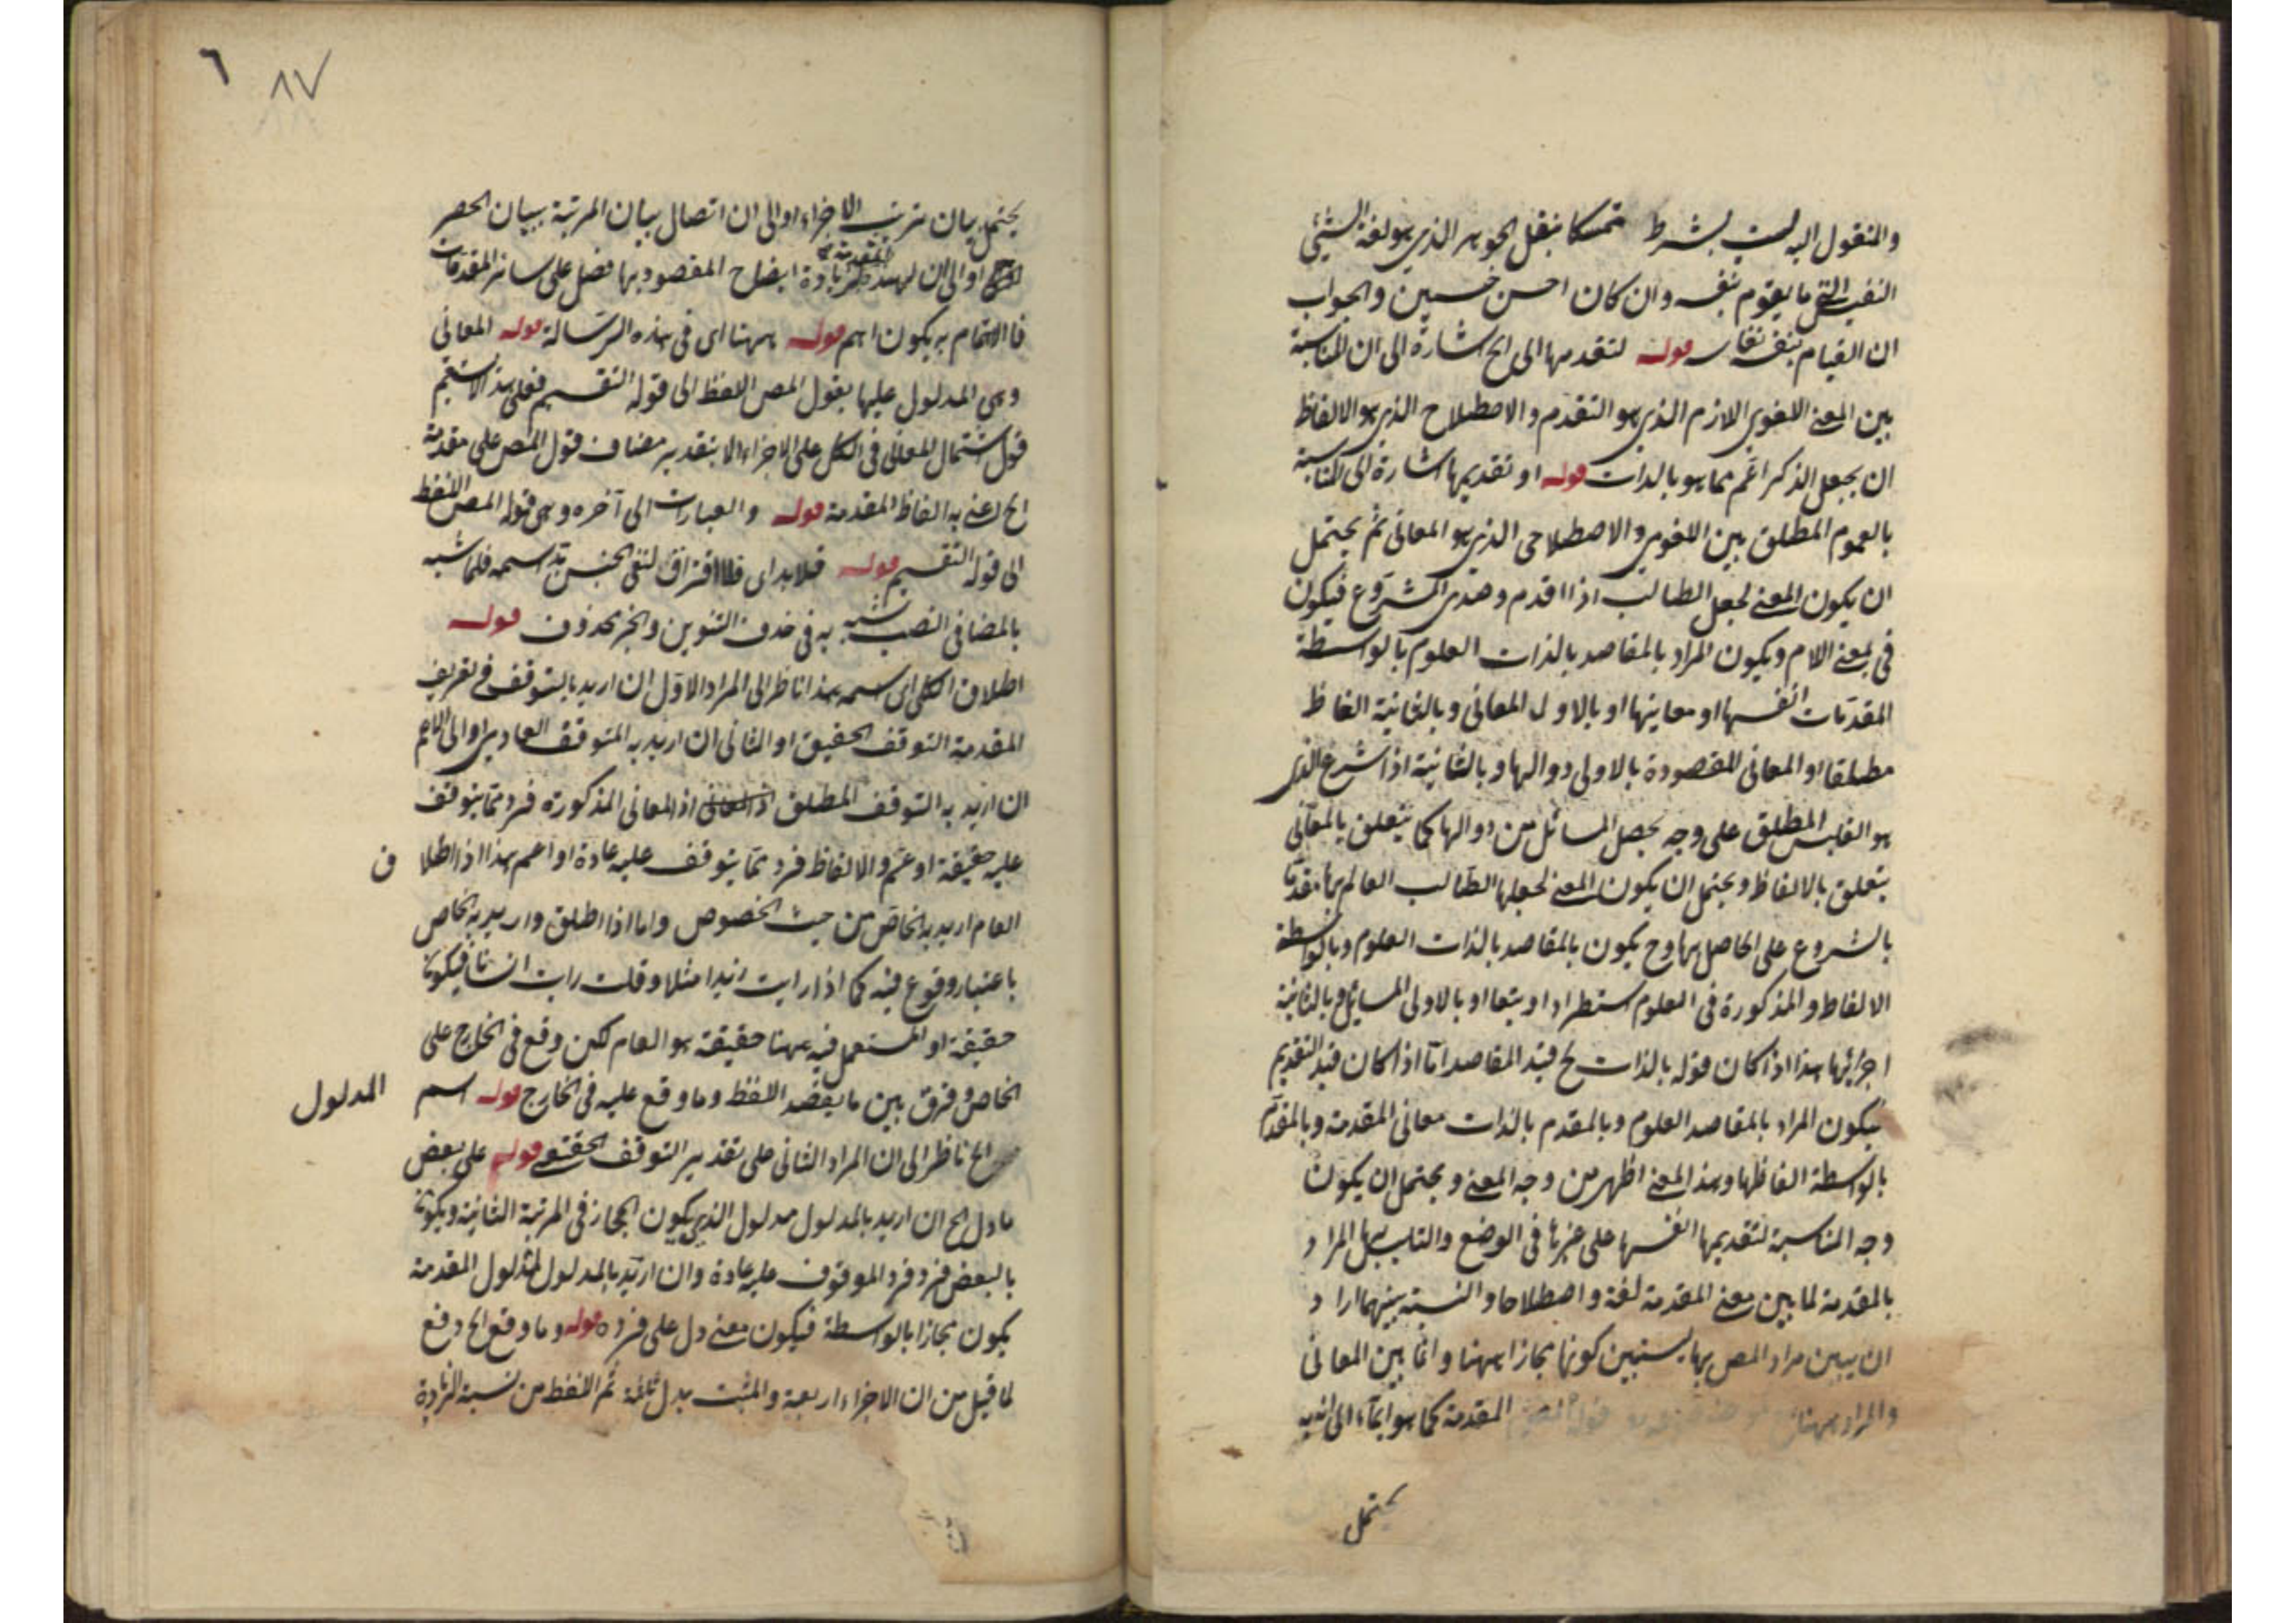 والمنقول اليه ليس بشرط تمسكا بنقل الجوهر الذي هو لغة الشيئ
النفيس التي ما يقوم بنفسه وان كان احسن خسيس والجواب
ان القيام بنفسه نفاسة قوله لتقدمها الى الخ اشارة الى ان المناسبة
بين المعنى اللغوي اللازم الذي هو التقدم والاصطلاح الذي هو الالفاظ
ان يجعل الذكر اعم مما هو بالذات قوله او تقديمها اشارة الى المناسبة
بالعموم المطلق بين اللغوي والاصطلاحي الذي هو المعاني ثم يحتمل
ان يكون المعنى لجعل الطالب اذا اقدم وصدى الشروع فيكون
في بمعنى اللام ويكون المراد بالمقاصد بالذات العلوم بالواسطة
المقدمات انفسها او معاينها او بالاول المعاني وبالثانية الفاظ
مطلقا او المعاني المقصودة بالاولى دوالها وبالثانية اذا شرع الذي
هو القلب المطلق على وجه يحصل المسائل من دوالها كما يتعلق بالمعاني
يتعلق بالالفاظ ويحتمل ان يكون المعنى لجعلها الطالب العالم بها مقدما
بالشروع على الحاصل بها وح يكون بالمقاصد بالذات العلوم وبالواسطة
الالفاظ والمذكورة في العلوم استطرادا وبتعا او بالاولى المسائل وبالثانية
اجزائها هذا اذا كان قوله بالذات لح قيد المقاصد اما اذا كان قيد التقديم
فيكون المراد بالمقاصد العلوم وبالمقدم بالذات معاني المقدمة وبالمقدم
بالواسطة الفاظها وهذا المعنى اظهر من وجه المعنى ويحتمل ان يكون
وجه المناسبة لتقديمها انفسها على غيرها في الوضع والتناسب بها المراد
بالمقدمة لما بين معنى المقدمة لغة واصطلاحا والنسبة بينهما اراد
ان يبين مراد المص بها يستبين كونها مجازا ههنا وانما بين المعاني
والمراد ههنا المقدمة كما هو ايماء الى انه
يحتمل
٦ ٨٧
يحتمل بيان ترتيب الاجزاء او الى ان اتصال بيان المرتبة ببيان الحصر
او الى ان لهذه المقدمة زيادة ايضاح المقصود بها فضل على سائر المقدمات
فالاهتمام به يكون اهم قوله ههنا اى في هذه الرسالة قوله المعاني
وهي المدلول عليها بقول المص اللفظ الى قوله التقسيم فعلى هذا لا يستقيم
قول اشتمال المعاني في الكل على الاجزاء الا بتقدير مضاف قول المص على مقدمة
الخ اعني به الفاظ المقدمة قوله والعبارت الى آخره وهى قوله المص اللفظ
الى قوله التقسيم قوله فلا بد اى فلا افتراق لنفى الجنس بد اسمه فلما شبه
بالمضافى النصب شبه به في حذف التنوين والخبر محذوف قوله
اطلاق الكلى اى اسمه هذا ناظر الى المراد الاول ان اريد بالتوقف في تعريف
المقدمة التوقف الحقيق او الثاني ان اريد به المتوقف العادي او الى الاعم
ان اريد به التوقف المطلق اذ المعاني اذ المعاني المذكورة فرد مما يتوقف
عليه حقيقة او عم والالفاظ فرد مما يتوقف عليه عادة او اعم هذا اذا اطلا ق
العام اريد به الخاص من حيث الخصوص واما اذا اطلق واريد به الخاص
باعتبار وقوع فيه كما اذا رايت زيدا مثلا وقلت رايت انسانا فيكون
حقيقة او المستعمل فيه ههنا حقيقة هو العام لكن وقع في الخارج على
الخاص وفرق بين ما يقصد اللفظ وما وقع عليه في الخارج قوله اسم المدلول
الخ ناظر الى ان المراد الثاني على تقدير التوقف الحقيقى قوله على بعض
ما دل الخ ان اريد بالمدلول مدلول الذي يكون المجاز في المرتبة الثانية ويكون
بالبعض فرد فرد الموقوف عليه عادة وان اريد بالمدلول المدلول المقدمة
يكون مجازا بالواسطة فيكون معنى دل على فرده قوله وما وقع الخ دفع
لما قيل من ان الاجزاء اربعة والمثبت بدل ثلثة ثم اللفظ من نسبة الزيادة